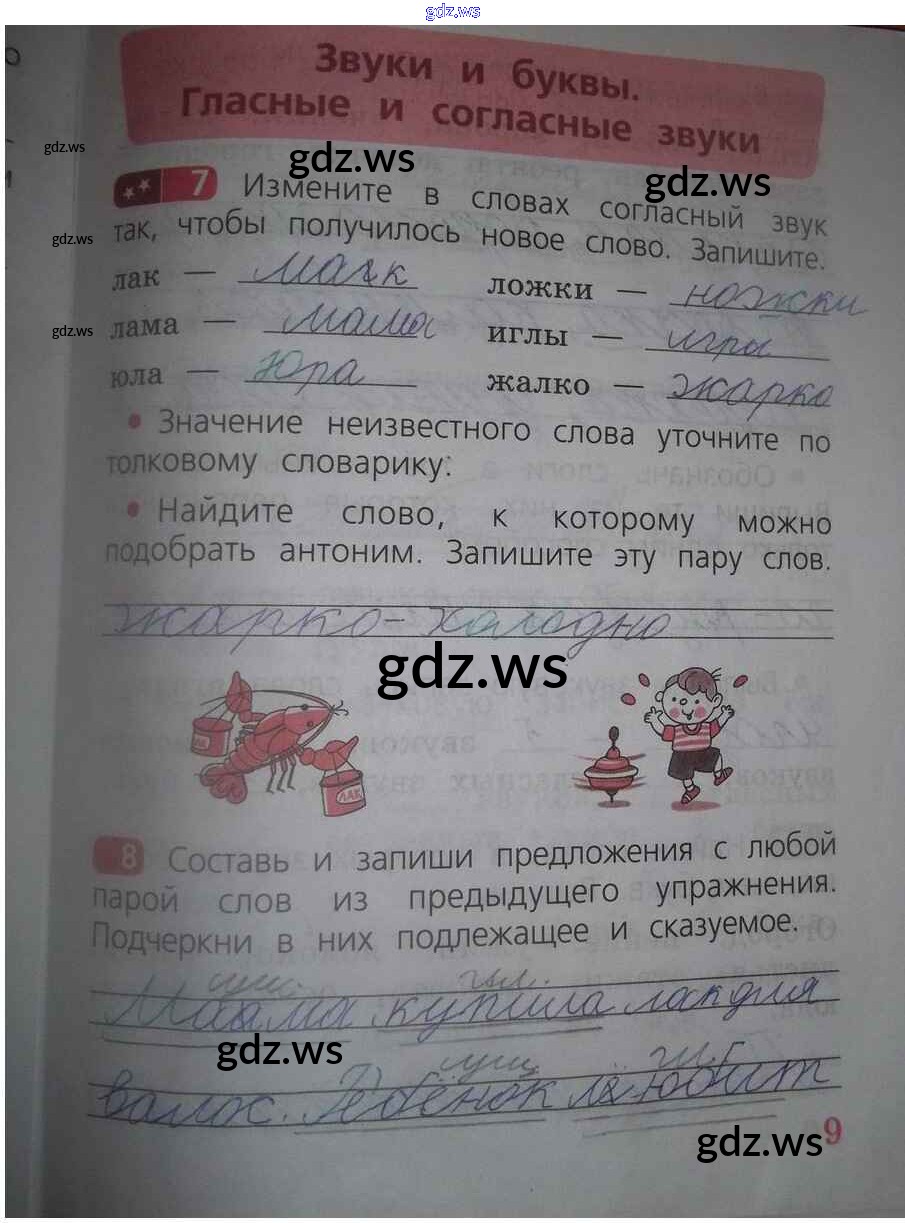 gdz.ws
Звуки и буквы.
Гласные и согласные звуки
gdz.ws
gdz.ws
gdz.ws
7 Измените в словах согласный звук
так, чтобы получилось новое слово. Запишите.
gdz.ws
лак — ложки — ножки
лама — мама иглы — игры
gdz.ws
юла — Юра жалко — жарко
• Значение неизвестного слова уточните по
толковому словарику:
• Найдите слово, к которому можно
подобрать антоним. Запишите эту пару слов.
жарко - холодно
gdz.ws
ЛАК
8 Составь и запиши предложения с любой
парой слов из предыдущего упражнения.
Подчеркни в них подлежащее и сказуемое.
сущ. гл.
Маама купила лак для
gdz.ws
сущ гл.
валос. Ребёнок любит
gdz.ws
9